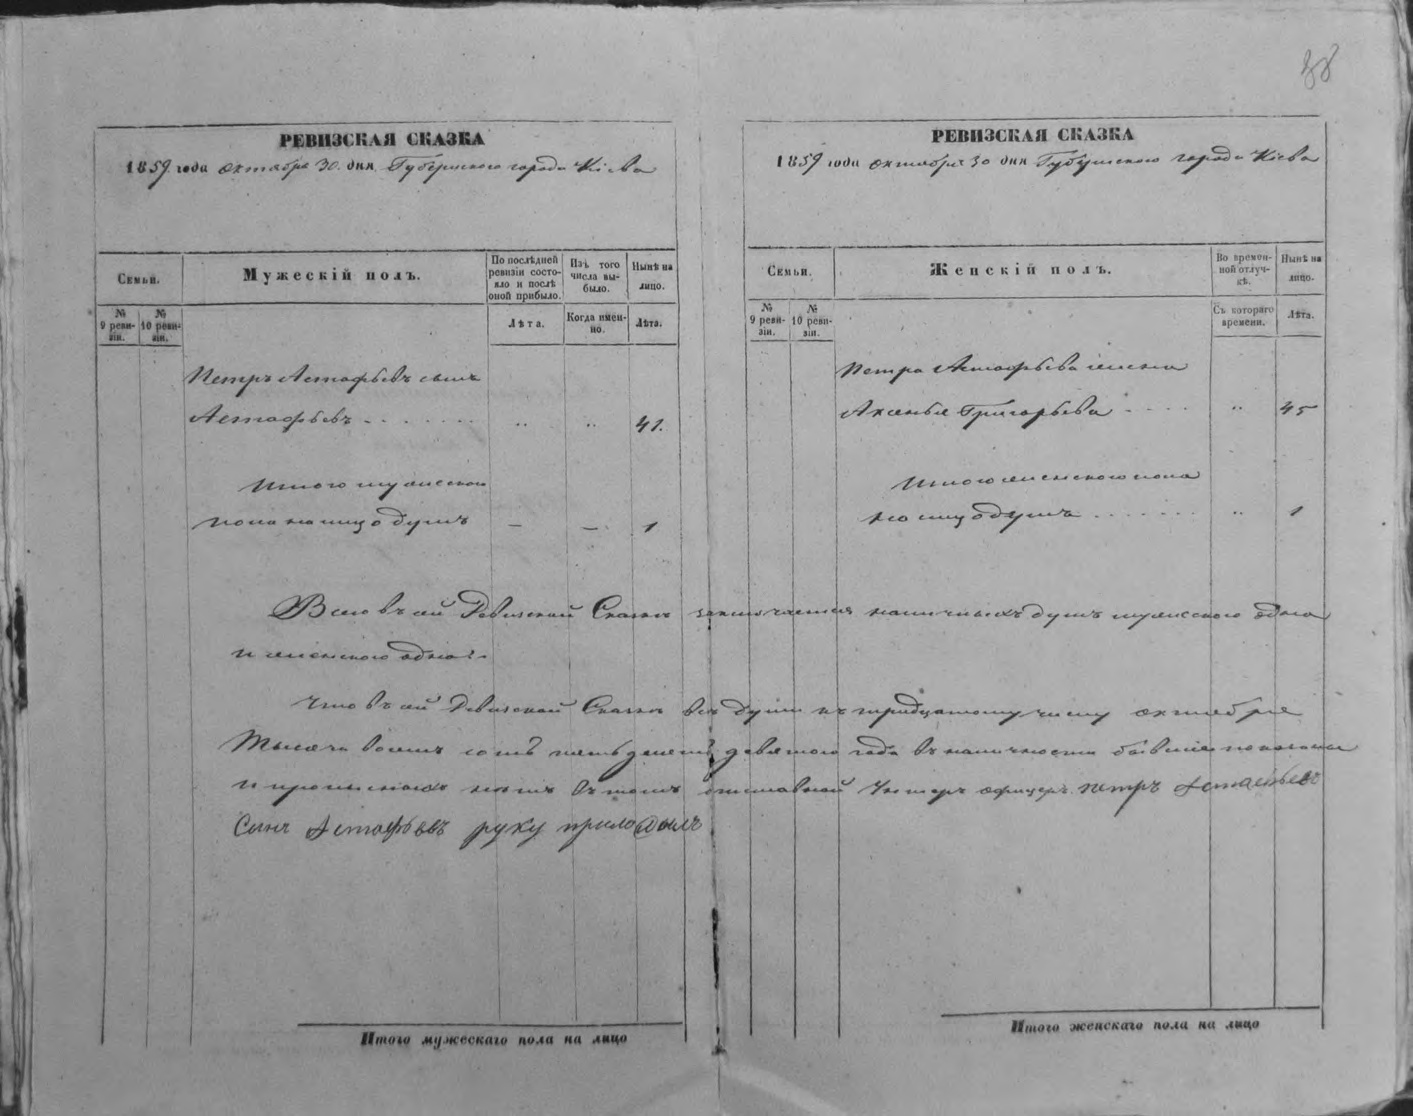 88
РЕВИЗСКАЯ СКАЗКА
1859 года октября 30 дня Губернского города Кіева
Семьи.
Мужескій полъ.
По послѣдней ревизіи состояло и послѣ оной прибыло.
Изъ того числа выбыло.
Нынѣ на лицо.
№ 9 ревизіи.
№ 10 ревизіи.
Лѣта.
Когда именно.
Лѣта.
Петръ Астафьевъ сынъ
Астафьевъ . . . . . . . „ „ 41.
Итого мужеского
пола на лицо душъ — — 1
РЕВИЗСКАЯ СКАЗКА
1859 года октября 30 дня Губернского города Кіева
Семьи.
Женскій полъ.
Во временной отлучкѣ.
Нынѣ на лицо.
№ 9 ревизіи.
№ 10 ревизіи.
Съ котораго времени.
Лѣта.
Петра Астафьева жена
Аксенья Григорьева . . . . „ 45
Итого женского пола
на лицо душъ . . . . . . . „ 1
Всего въ сей Ревизской Сказкѣ заключается наличныхъ душъ мужеского одна
и женского одна.
Что въ сей Ревизской Сказкѣ всѣ души къ тридцатому числу октября
тысяча восемь сотъ пятьдесятъ девятого года въ наличности бывшіе показаны
и прописныхъ нѣтъ въ томъ отставной Унтеръ офицеръ Петръ Астафьевъ
Сынъ Астафьевъ руку приложилъ
Итого мужескаго пола на лицо
Итого женскаго пола на лицо